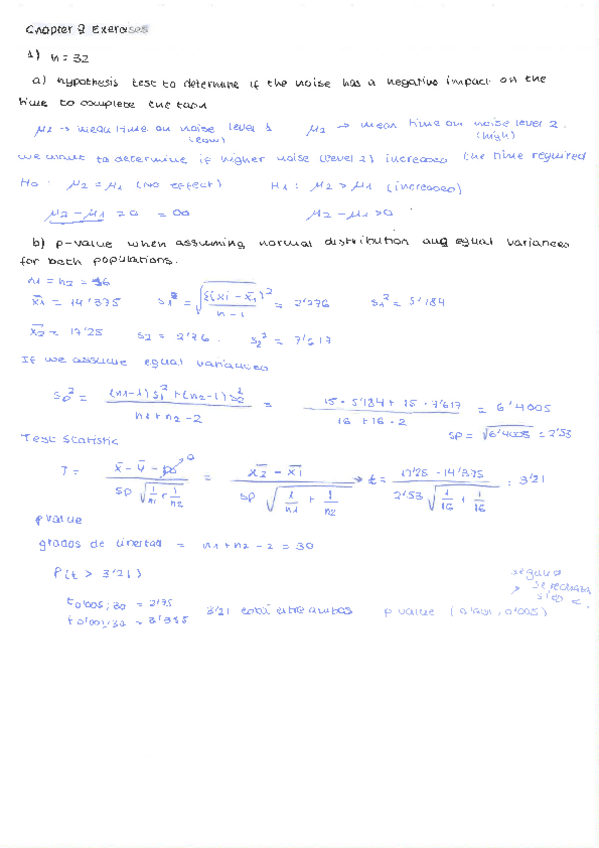 Chapter 9 Exercises
1) n = 32
a) hypothesis test to determine if the noise has a negative impact on the
time to complete the task
μ1 → mean time on noise level 1 (low) μ2 → mean time on noise level 2. (high)
We want to determine if higher noise (level 2) increases the time required
H0: μ2 = μ1 (no effect) H1: μ2 > μ1 (increases)
μ2 - μ1 = 0 μ2 - μ1 > 0
b) p-value when assuming normal distribution and equal variances
for both populations.
n1 = n2 = 16
x̄1 = 14'375 s1 = √(Σ(xi - x̄1)² / n-1) = 2'276 s1² = 5'184
x̄2 = 17'25 s2 = 2'76. s2² = 7'617
If we assume equal variances
sp² = ((n1-1)s1² + (n2-1)s2²) / (n1+n2-2) = (15 · 5'184 + 15 · 7'617) / (16 + 16 - 2) = 6'4005
sp = √6'4005 = 2'53
Test Statistic
T = (x̄ - ȳ - D0→0) / (sp √(1/n1 + 1/n2)) = (x̄2 - x̄1) / (sp √(1/n1 + 1/n2)) → t = (17'25 - 14'375) / (2'53 √(1/16 + 1/16)) = 3'21
p value
grados de libertad = n1+n2-2 = 30
P(t > 3'21)
t0'005;30 = 2'75
t0'001;30 = 3'385 3'21 está entre ambas p value (0'001, 0'005)
se rechaza